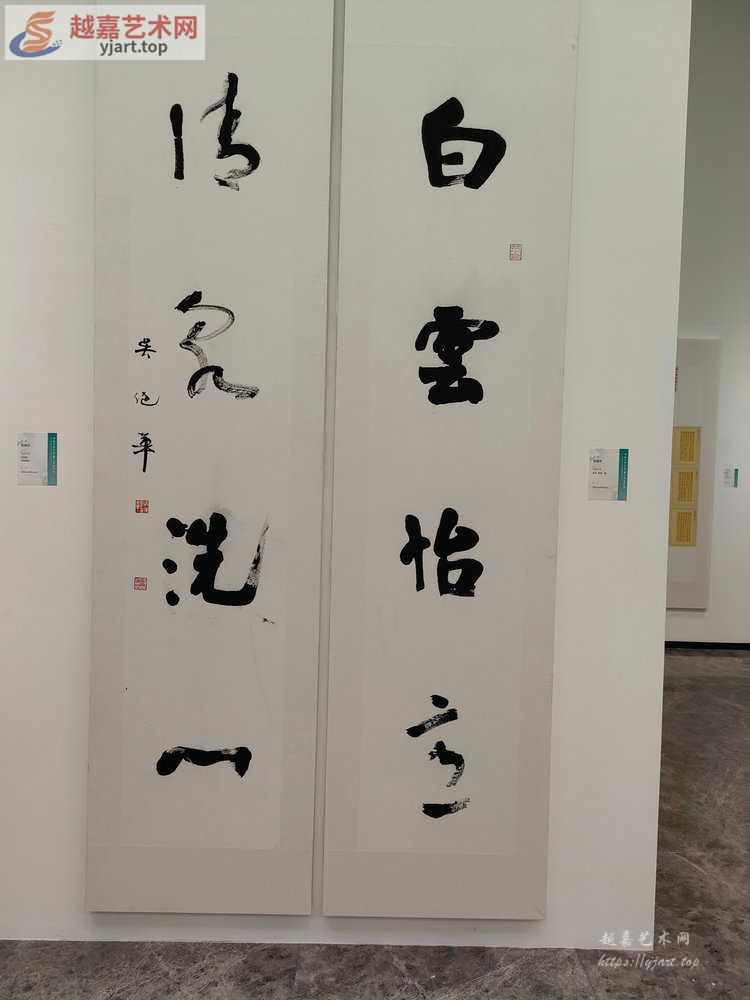 越嘉艺术网
yjart.top
白雲怡意
清泉洗心
越嘉艺术网
https://yjart.top